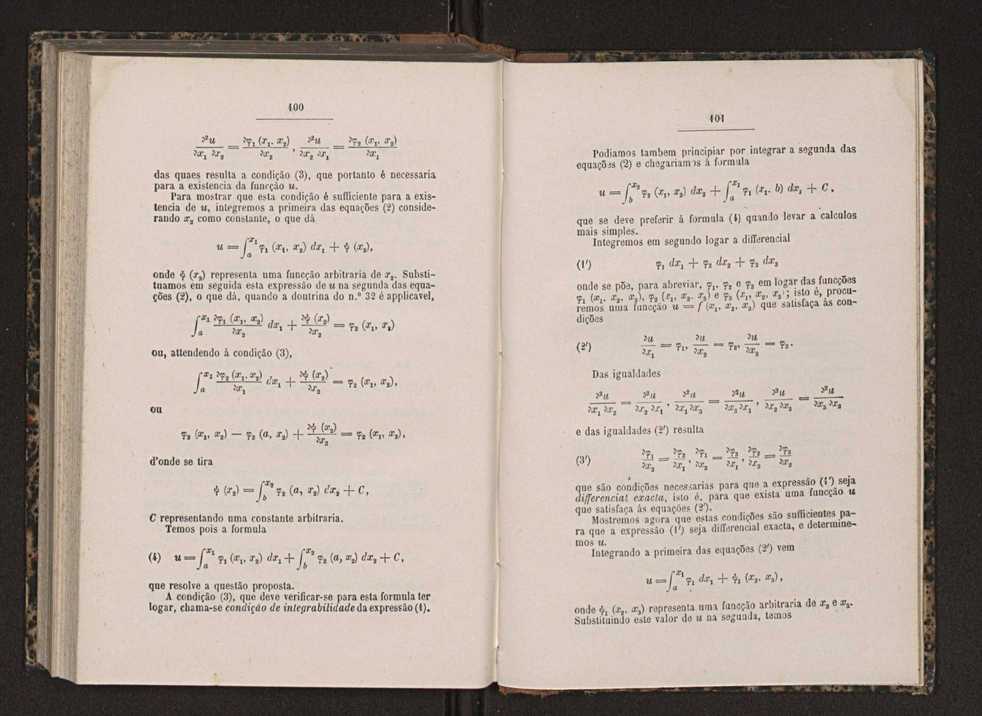 400
∂²u/∂x₁ ∂x₂ = ∂φ₁ (x₁, x₂)/∂x₂ , ∂²u/∂x₂ ∂x₁ = ∂φ₂ (x₁, x₂)/∂x₁
das quaes resulta a condição (3), que portanto é necessaria
para a existencia da funcção u.
Para mostrar que esta condição é sufficiente para a exis-
tencia de u, integremos a primeira das equações (2) conside-
rando x₂ como constante, o que dá
u = ∫ₐ^x₁ φ₁ (x₁, x₂) dx₁ + ψ (x₂),
onde ψ (x₂) representa uma funcção arbitraria de x₂. Substi-
tuamos em seguida esta expressão de u na segunda das equa-
ções (2), o que dá, quando a doutrina do n.º 32 é applicavel,
∫ₐ^x₁ ∂φ₁ (x₁, x₂)/∂x₂ dx₁ + ∂ψ (x₂)/∂x₂ = φ₂ (x₁, x₂)
ou, attendendo à condição (3),
∫ₐ^x₁ ∂φ₂ (x₁, x₂)/∂x₁ dx₁ + ∂ψ (x₂)/∂x₂ = φ₂ (x₁, x₂),
ou
φ₂ (x₁, x₂) — φ₂ (a, x₂) + ∂ψ (x₂)/∂x₂ = φ₂ (x₁, x₂),
d'onde se tira
ψ (x₂) = ∫_b^x₂ φ₂ (a, x₂) dx₂ + C,
C representando uma constante arbitraria.
Temos pois a formula
(4) u = ∫ₐ^x₁ φ₁ (x₁, x₂) dx₁ + ∫_b^x₂ φ₂ (a, x₂) dx₂ + C,
que resolve a questão proposta.
A condição (3), que deve verificar-se para esta formula ter
logar, chama-se condição de integrabilidade da expressão (1).
401
Podiamos tambem principiar por integrar a segunda das
equações (2) e chegariamos à formula
u = ∫_b^x₂ φ₂ (x₁, x₂) dx₂ + ∫ₐ^x₁ φ₁ (x₁, b) dx₁ + C,
que se deve preferir á formula (4) quando levar a calculos
mais simples.
Integremos em segundo logar a differencial
(1′) φ₁ dx₁ + φ₂ dx₂ + φ₃ dx₃
onde se põe, para abreviar, φ₁, φ₂ e φ₃ em logar das funcções
φ₁ (x₁, x₂, x₃), φ₂ (x₁, x₂, x₃) e φ₃ (x₁, x₂, x₃); isto é, procu-
remos uma funcção u = f (x₁, x₂, x₃) que satisfaça ás con-
dições
(2′) ∂u/∂x₁ = φ₁, ∂u/∂x₂ = φ₂, ∂u/∂x₃ = φ₃.
Das igualdades
∂²u/∂x₁ ∂x₂ = ∂²u/∂x₂ ∂x₁ , ∂²u/∂x₁ ∂x₃ = ∂²u/∂x₃ ∂x₁ , ∂²u/∂x₂ ∂x₃ = ∂²u/∂x₃ ∂x₂
e das igualdades (2′) resulta
(3′) ∂φ₁/∂x₂ = ∂φ₂/∂x₁ , ∂φ₁/∂x₃ = ∂φ₃/∂x₁ , ∂φ₂/∂x₃ = ∂φ₃/∂x₂
que são condições necessarias para que a expressão (1′) seja
differencial exacta, isto é, para que exista uma funcção u
que satisfaça ás equações (2′).
Mostremos agora que estas condições são sufficientes pa-
ra que a expressão (1′) seja differencial exacta, e determine-
mos u.
Integrando a primeira das equações (2′) vem
u = ∫ₐ^x₁ φ₁ dx₁ + ψ₁ (x₂, x₃),
onde ψ₁ (x₂, x₃) representa uma funcção arbitraria de x₂ e x₃.
Substituindo este valor de u na segunda, temos